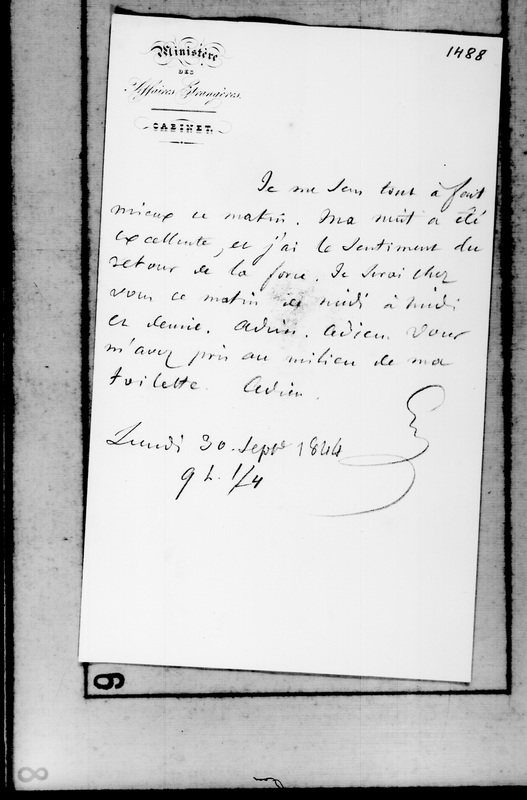 1488
Ministère
DES
Affaires Étrangères.
CABINET.
Je me sens tout à fait
mieux ce matin. Ma nuit a été
excellente, et j'ai le sentiment du
retour de la force. Je serai chez
vous ce matin de midi à midi
et demie. Adieu. Adieu. Vous
m'avez pris au milieu de ma
toilette. Adieu.
G
Lundi 30. Septe 1844
9 h. 1/4
9
8